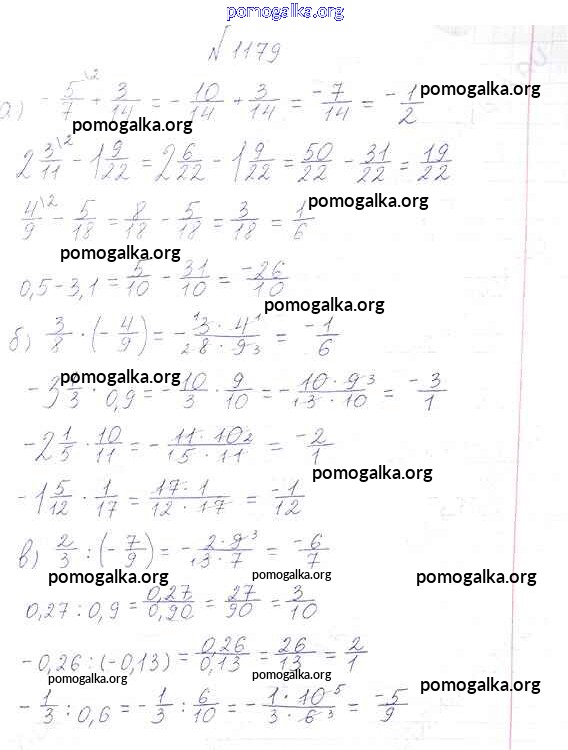 pomogalka.org
№ 1179
а) -5/7\2 + 3/14 = -10/14 + 3/14 = -7/14 = -1/2
pomogalka.org
pomogalka.org
2 3/11\2 - 1 9/22 = 2 6/22 - 1 9/22 = 50/22 - 31/22 = 19/22
4/9\2 - 5/18 = 8/18 - 5/18 = 3/18 = 1/6
pomogalka.org
pomogalka.org
0,5 - 3,1 = 5/10 - 31/10 = -26/10
pomogalka.org
б) 3/8 · (-4/9) = - 1 3 · 4 1 / 2 8 · 9 3 = -1/6
pomogalka.org
-3 1/3 · 0,9 = -10/3 · 9/10 = - 10 · 9 3 / 1 3 · 10 = -3/1
-2 1/5 · 10/11 = - 11 · 10 2 / 1 5 · 11 = -2/1
pomogalka.org
-1 5/12 · 1/17 = 17 · 1 / 12 · 17 = -1/12
в) 2/3 : (-7/9) = - 2 · 9 3 / 1 3 · 7 = -6/7
pomogalka.org pomogalka.org pomogalka.org
0,27 : 0,9 = 0,27/0,90 = 27/90 = 3/10
-0,26 : (-0,13) = 0,26/0,13 = 26/13 = 2/1
pomogalka.org pomogalka.org pomogalka.org
-1/3 : 0,6 = -1/3 : 6/10 = - 1 · 10 5 / 3 · 6 3 = -5/9